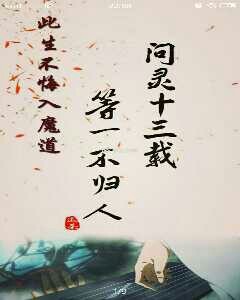 问灵十三载
等一不归人
此生不悔入魔道
1/9